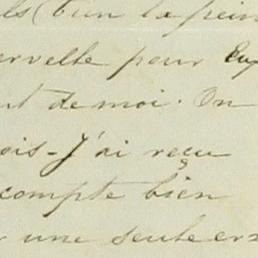 (bien la pein
ervelle pour
nt de moi. On
ois - J'ai reçu
compte bien
une seule